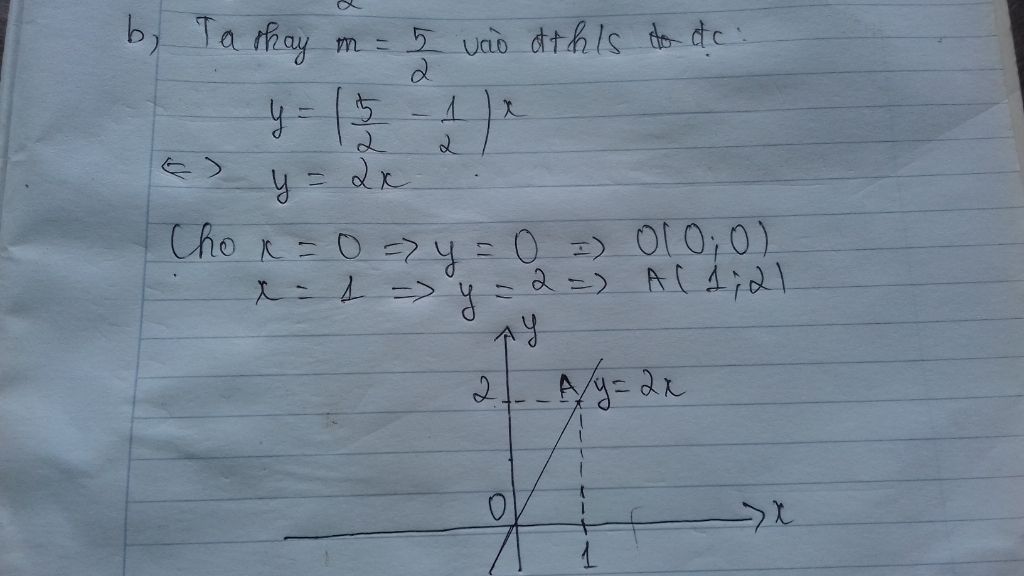 b, Ta thay m = 5/2 vào đths đc:
y = (5/2 - 1/2)x
<=> y = 2x
Cho x = 0 => y = 0 => O(0;0)
x = 1 => y = 2 => A(1;2)
y
2 A y = 2x
O x
1